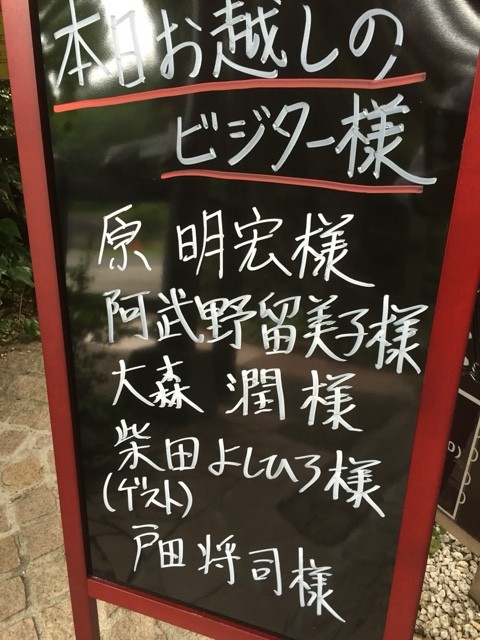 本日お越しの
ビジター様
原 明宏様
阿武野留美子様
大森 潤様
柴田よしひろ様
(ゲスト)
戸田将司様